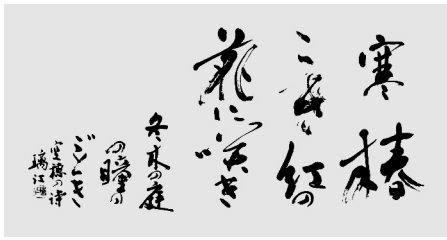 寒椿
こぞ紅の
花に咲き
冬木の庭
の瞳の
ごとき
空穂の詩